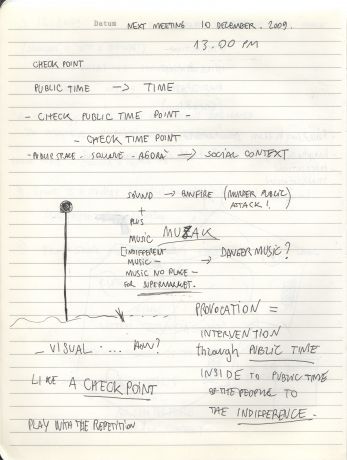 Datum NEXT MEETING 10 DECEMBER. 2009.
13.00 PM
CHECK POINT
PUBLIC TIME -> TIME
- CHECK PUBLIC TIME POINT -
- CHECK TIME POINT
- PUBLIC SPACE - SQUARE - AGORÀ -> SOCIAL CONTEXT
SOUND -> BONFIRE (MURDER PUBLIC)
ATTACK!
+
PLUS
MUSIC MUZAK
[INDIFFERENT
MUSIC - -> DANGER MUSIC?
MUSIC NO PLACE -
FOR SUPERMARKET.
PROVOCATION =
INTERVENTION
through PUBLIC TIME
INSIDE TO PUBLIC TIME
OF THE PEOPLE TO
THE INDIFFERENCE.
- VISUAL. ... HOW?
LIKE A CHECK POINT
PLAY WITH THE REPETITION